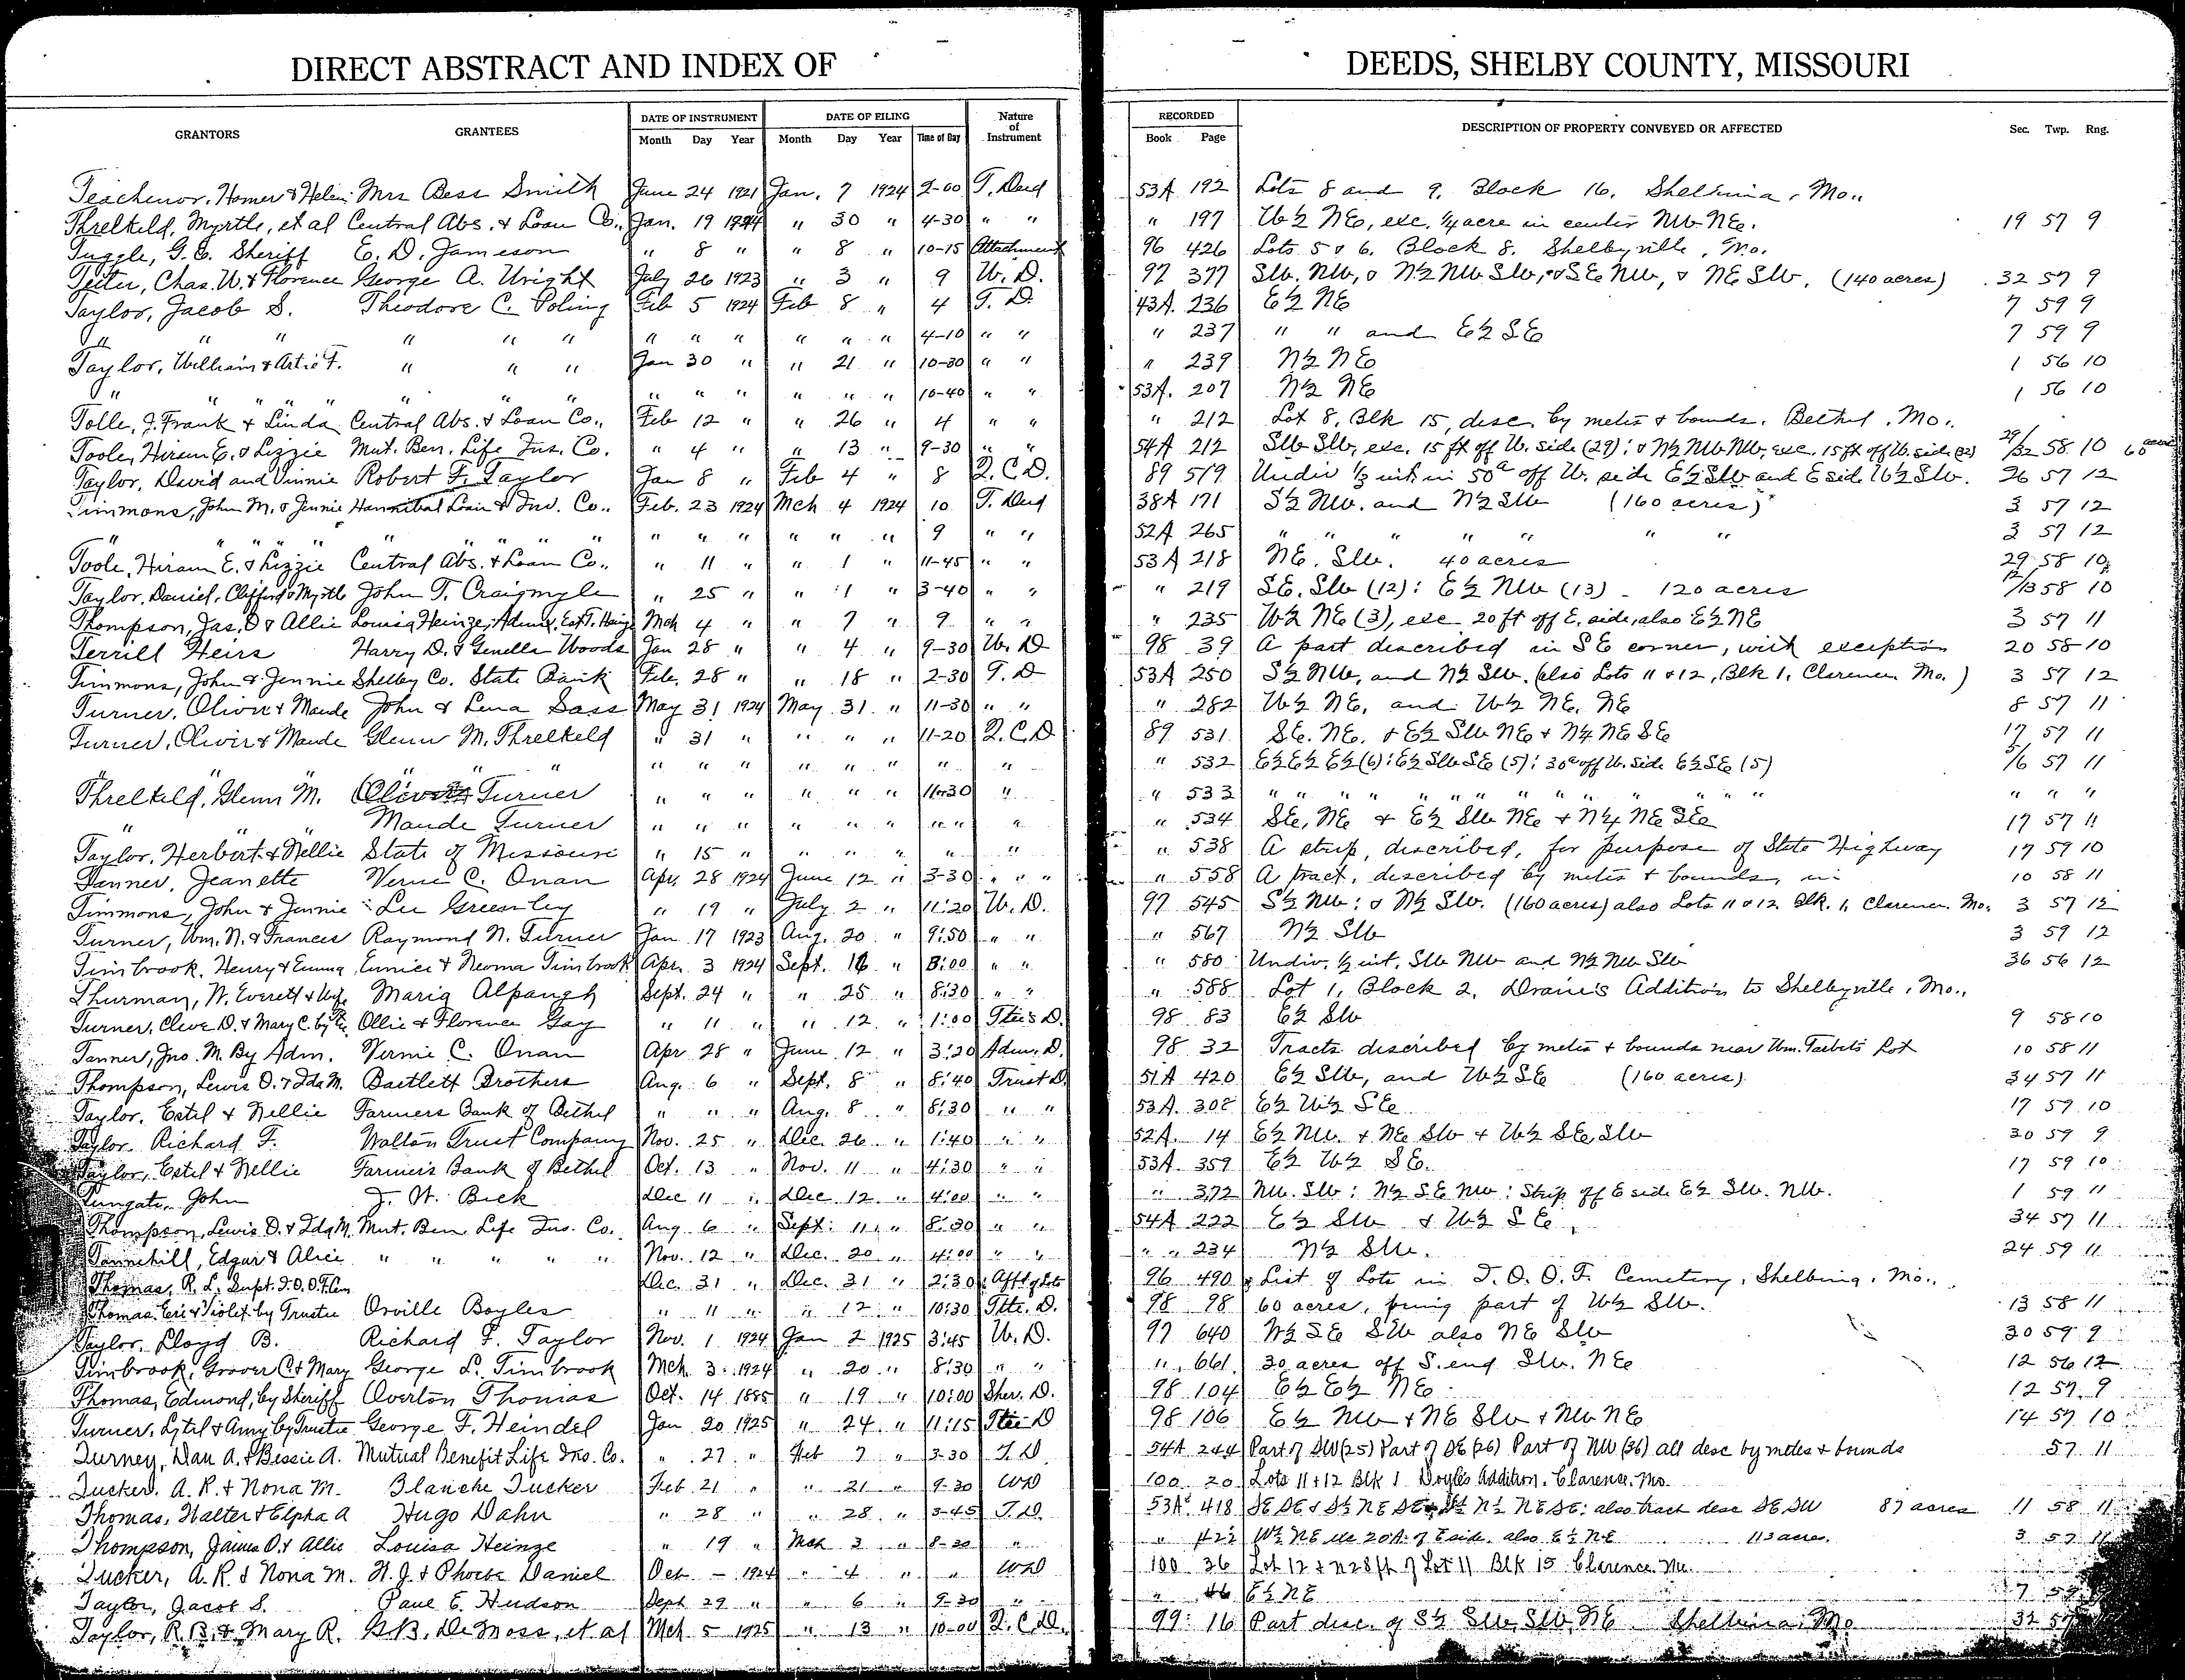 DIRECT ABSTRACT AND INDEX OF DEEDS, SHELBY COUNTY, MISSOURI
GRANTORS GRANTEES DATE OF INSTRUMENT DATE OF FILING Nature of Instrument RECORDED DESCRIPTION OF PROPERTY CONVEYED OR AFFECTED Sec. Twp. Rng.
Month Day Year Month Day Year Time of Day Book Page
Teachenor, Homer & Helen Mrs Bess Smith June 24 1921 Jan. 7 1924 2-00 T. Deed 53A 192 Lots 8 and 9. Block 16. Shelbina, Mo..
Threlkeld, Myrtle, et al Central Abs. & Loan Co.. Jan. 19 1924 " 30 " 4-30 " " " 197 W½ NE, exc. ¼ acre in center NW NE. 19 57 9
Tuggle, G.C. Sheriff E. D. Jameson " 8 " " 8 " 10-15 Attachment 96 426 Lots 5 & 6. Block 8. Shelbyville, Mo.
Teter, Chas. W. & Florence George A. Wright July 26 1923 " 3 " 9 W. D. 97 377 SW. NW, & N½ NW SW, & SE NW, & NE SW. (140 acres) 32 57 9
Taylor, Jacob S. Theodore C. Poling Feb 5 1924 Feb 8 " 4 T. D. 43A. 236 E½ NE 7 59 9
" " " " " " " " " " " " 4-10 " " " 237 " " and E½ SE 7 59 9
Taylor, William & Artie F. " " " Jan 30 " " 21 " 10-30 " " " 239 N½ NE 1 56 10
" " " " " " " " " " " " 10-40 " " 53A. 207 N½ NE 1 56 10
Tolle, J. Frank & Linda Central Abs. & Loan Co.. Feb 12 " " 26 " 4 " " " 212 Lot 8, Blk 15, desc. by metes & bounds. Bethel, Mo..
Toole, Hiram E. & Lizzie Mut. Ben. Life Ins. Co. " 4 " " 13 " 9-30 " " 54A 212 SW SW, exc. 15 ft off W. side (29): & N½ NW NW, exc. 15 ft off W. side (32) 29/32 58 10 60 acres
Taylor, David and Vinnie Robert F. Taylor Jan 8 " Feb 4 " 8 Q. C. D. 89 519 Undiv ⅓ int. in 50a off W. side E½ SW and E side W½ SW. 26 57 12
Timmons, John M. & Jennie Hannibal Loan & Inv. Co.. Feb. 23 1924 Mch 4 1924 10 T. Deed 38A 171 S½ NW. and N½ SW (160 acres) 3 57 12
" " " " " " " " " " " " " 9 " " 52A 265 " " " " " " " 3 57 12
Toole, Hiram E. & Lizzie Central Abs. & Loan Co.. " 11 " " 1 " 11-45 " " 53A 218 NE. SW. 40 acres 29 58 10
Taylor, Daniel, Clifford & Myrtle John T. Craigmyle " 25 " " 1 " 3-40 " " " 219 SE. SW (12): E½ NW (13) - 120 acres 12/13 58 10
Thompson, Jas. D & Allie Louisa Heinze, Admx. Est. T. Heinze Mch 4 " " 7 " 9 " " " 235 W½ NE (3), exc 20 ft off E. side, also E½ NE 3 57 11
Terrill Heirs Harry D. & Genella Woods Jan 28 " " 4 " 9-30 W. D 98 39 A part described in SE corner, with exception 20 58 10
Timmons, John & Jennie Shelby Co. State Bank Feb. 28 " " 18 " 2-30 T. D 53A 250 S½ NW, and N½ SW. (also Lots 11 & 12, Blk 1, Clarence Mo.) 3 57 12
Turner, Oliver & Maude John & Lena Sass May 31 1924 May 31. " 11-30 " " " 282 W½ NE. and W½ NE. NE 8 57 11
Turner, Oliver & Maude Glenn M. Threlkeld " 31 " " " " 11-20 Q. C. D 89 531 SE. NE. & E½ SW NE & N¼ NE SE 17 57 11
" " " " " " " " " " " " " " 532 E½ E½ E½ (6): E½ SW SE (5): 30a off W. side E½ SE (5) 5/6 57 11
Threlkeld, Glenn M. Oliver Turner " " " " " " 11-30 " " 533 " " " " " " " " " " " " " " "
" " Maude Turner " " " " " " " " " " 534 SE, NE & E½ SW NE & N¼ NE SE 17 57 11
Taylor, Herbert & Nellie State of Missouri " 15 " " " " " " " 538 A strip, described, for purpose of State Highway 17 59 10
Tanner, Jeanette Verne C. Onan Apr. 28 1924 June 12 " 3-30 " " " 558 A tract, described by metes & bounds, in 10 58 11
Timmons, John & Jennie Lee Greenley " 19 " July 2 " 11:20 W. D. 97 545 S½ NW: & N½ SW. (160 acres) also Lots 11 & 12 Blk. 1, Clarence Mo. 3 57 12
Turner, Wm. N. & Frances Raymond N. Turner Jan 17 1923 Aug. 20 " 9:50 " " " 567 N½ SW 3 59 12
Timbrook, Henry & Emma Eunice & Neoma Timbrook Apr. 3 1924 Sept. 16 " 8:00 " " " 580 Undiv. ½ int. SW NW and N½ NW SW 36 56 12
Thurman, W. Everett & Wife Maria Alpaugh Sept. 24 " " 25 " 8:30 " " " 588 Lot 1, Block 2, Drain's Addition to Shelbyville, Mo..
Turner, Clive D. & Mary C. by Tr. Ollie & Florence Gay " 11 " " 12 " 1:00 Ttee's D. 98 83 E½ SW 9 58 10
Tanner, Jno. M. By Adm. Vernie C. Onan Apr 28 " June 12 " 3:20 Adm. D. 98 32 Tracts described by metes & bounds near Wm. Lot 10 58 11
Thompson, Lewis O. & Ida M. Bartlett Brothers Aug. 6 " Sept. 8 " 8:40 Trust D. 51A 420 E½ SW, and W½ SE (160 acres) 34 57 11
Taylor, Estel & Nellie Farmers Bank of Bethel " " " Aug. 8 " 8:30 " " 53A. 308 E½ W½ SE 17 59 10
Taylor, Richard F. Walton Trust Company Nov. 25 " Dec. 26 " 1:40 " " 52A. 14 E½ NW. & NE SW & W½ SE, SW 30 59 9
Taylor, Estel & Nellie Farmers Bank of Bethel Oct. 13 " Nov. 11 " 4:30 " " 53A. 359 E½ W½ SE. 17 59 10
Tungate, John J. W. Bick Dec 11 " Dec. 12 " 4:00 " " " 372 NW. SW: N½ SE NW: Strip off E side E½ SW. NW. 1 59 11
Thompson, Lewis O. & Ida M. Mut. Ben Life Ins. Co. Aug 6 " Sept. 11 " 8:30 " " 54A 222 E½ SW & W½ SE. 34 57 11
Tannehill, Edgar & Alice " " " " " Nov. 12 " Dec. 20 " 4:00 " " " 234 N½ SW. 24 59 11
Thomas, R. L. Supt. I.O.O.F. Cem Dec. 31 " Dec. 31 " 2:30 96 490 List of Lots in I. O. O. F. Cemetery, Shelbina, Mo..
Thomas, Eric & Violet by Trustee Orville Boyles " 11 " " 12 " 10:30 Ttee. D. 98 98 60 acres, being part of W½ SW. 13 58 11
Taylor, Lloyd B. Richard F. Taylor Nov. 1 1924 Jan 2 1925 3:45 W. D. 97 640 W½ SE SW also NE SW 30 59 9
Timbrook, Grover C. & Mary George L. Timbrook Mch. 3 1924 " 20 " 8:30 " " " 661 30 acres off S. end SW. NE 12 56 12
Thomas, Edmond, by Sheriff Overton Thomas Oct. 14 1885 " 19 " 10:00 Sher. D. 98 104 E½ E½ NE 12 57 9
Turner, Lytel & Anny by Trustee George F. Heindel Jan 20 1925 " 24 " 11:15 Ttee D 98 106 E½ NW & NE SW & NW NE 14 57 10
Turney, Dan A. & Bessie A. Mutual Benefit Life Ins. Co. " 27 " Feb 7 " 3-30 T. D 54A 244 Part of SW (25) Part of SE (26) Part of NW (36) all desc by metes & bounds 57 11
Tucker, A. R. & Nona M. Blanche Tucker Feb 21 " " 21 " 9-30 WD 100 20 Lots 11 & 12 Blk 1 Doyles Addition. Clarence, Mo.
Thomas, Walter & Elpha A Hugo Dahn " 28 " " 28 " 3-45 T. D. 53A 418 SE SE & S½ NE SE & N½ NE SE: also tract desc SE SW 87 acres 11 58 11
Thompson, James O. & Allie Louisa Heinze " 19 " Mch 3 " 8-30 " " 422 W½ NE exc 20 ft. of E side, also E½ NE 113 acres. 3 57 11
Tucker, A. R. & Nona M. H. J. & Phoebe Daniel Oct - 1924 " 4 " " WD 100 36 Lot 12 & N 28 ft of Lot 11 Blk 15 Clarence Mo.
Taylor, Jacob S. Paul E. Hudson Sept 29 " " 6 " 9-30 " " 46 E½ NE 7 59
Taylor, R. B. & Mary R. G. B. DeMoss, et al Mch 5 1925 " 13 " 10-00 Q. C. D. 99 16 Part desc. of S½ SW, SW, NE Shelbina, Mo 32 57